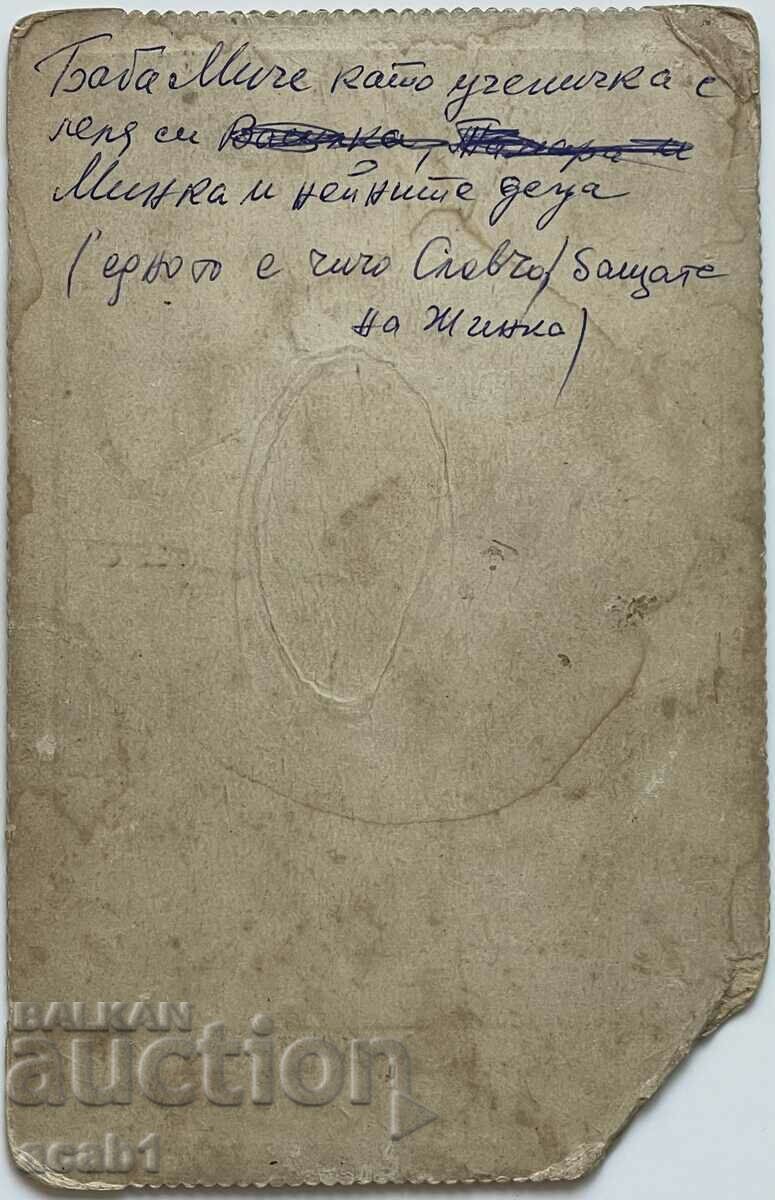 Баба Миче като ученичка с
леля си Василка, Тамара и
Минка и нейните деца
(едното е чичо Славчо / бащата
на Жинка)
BALKAN
auction
qcab1